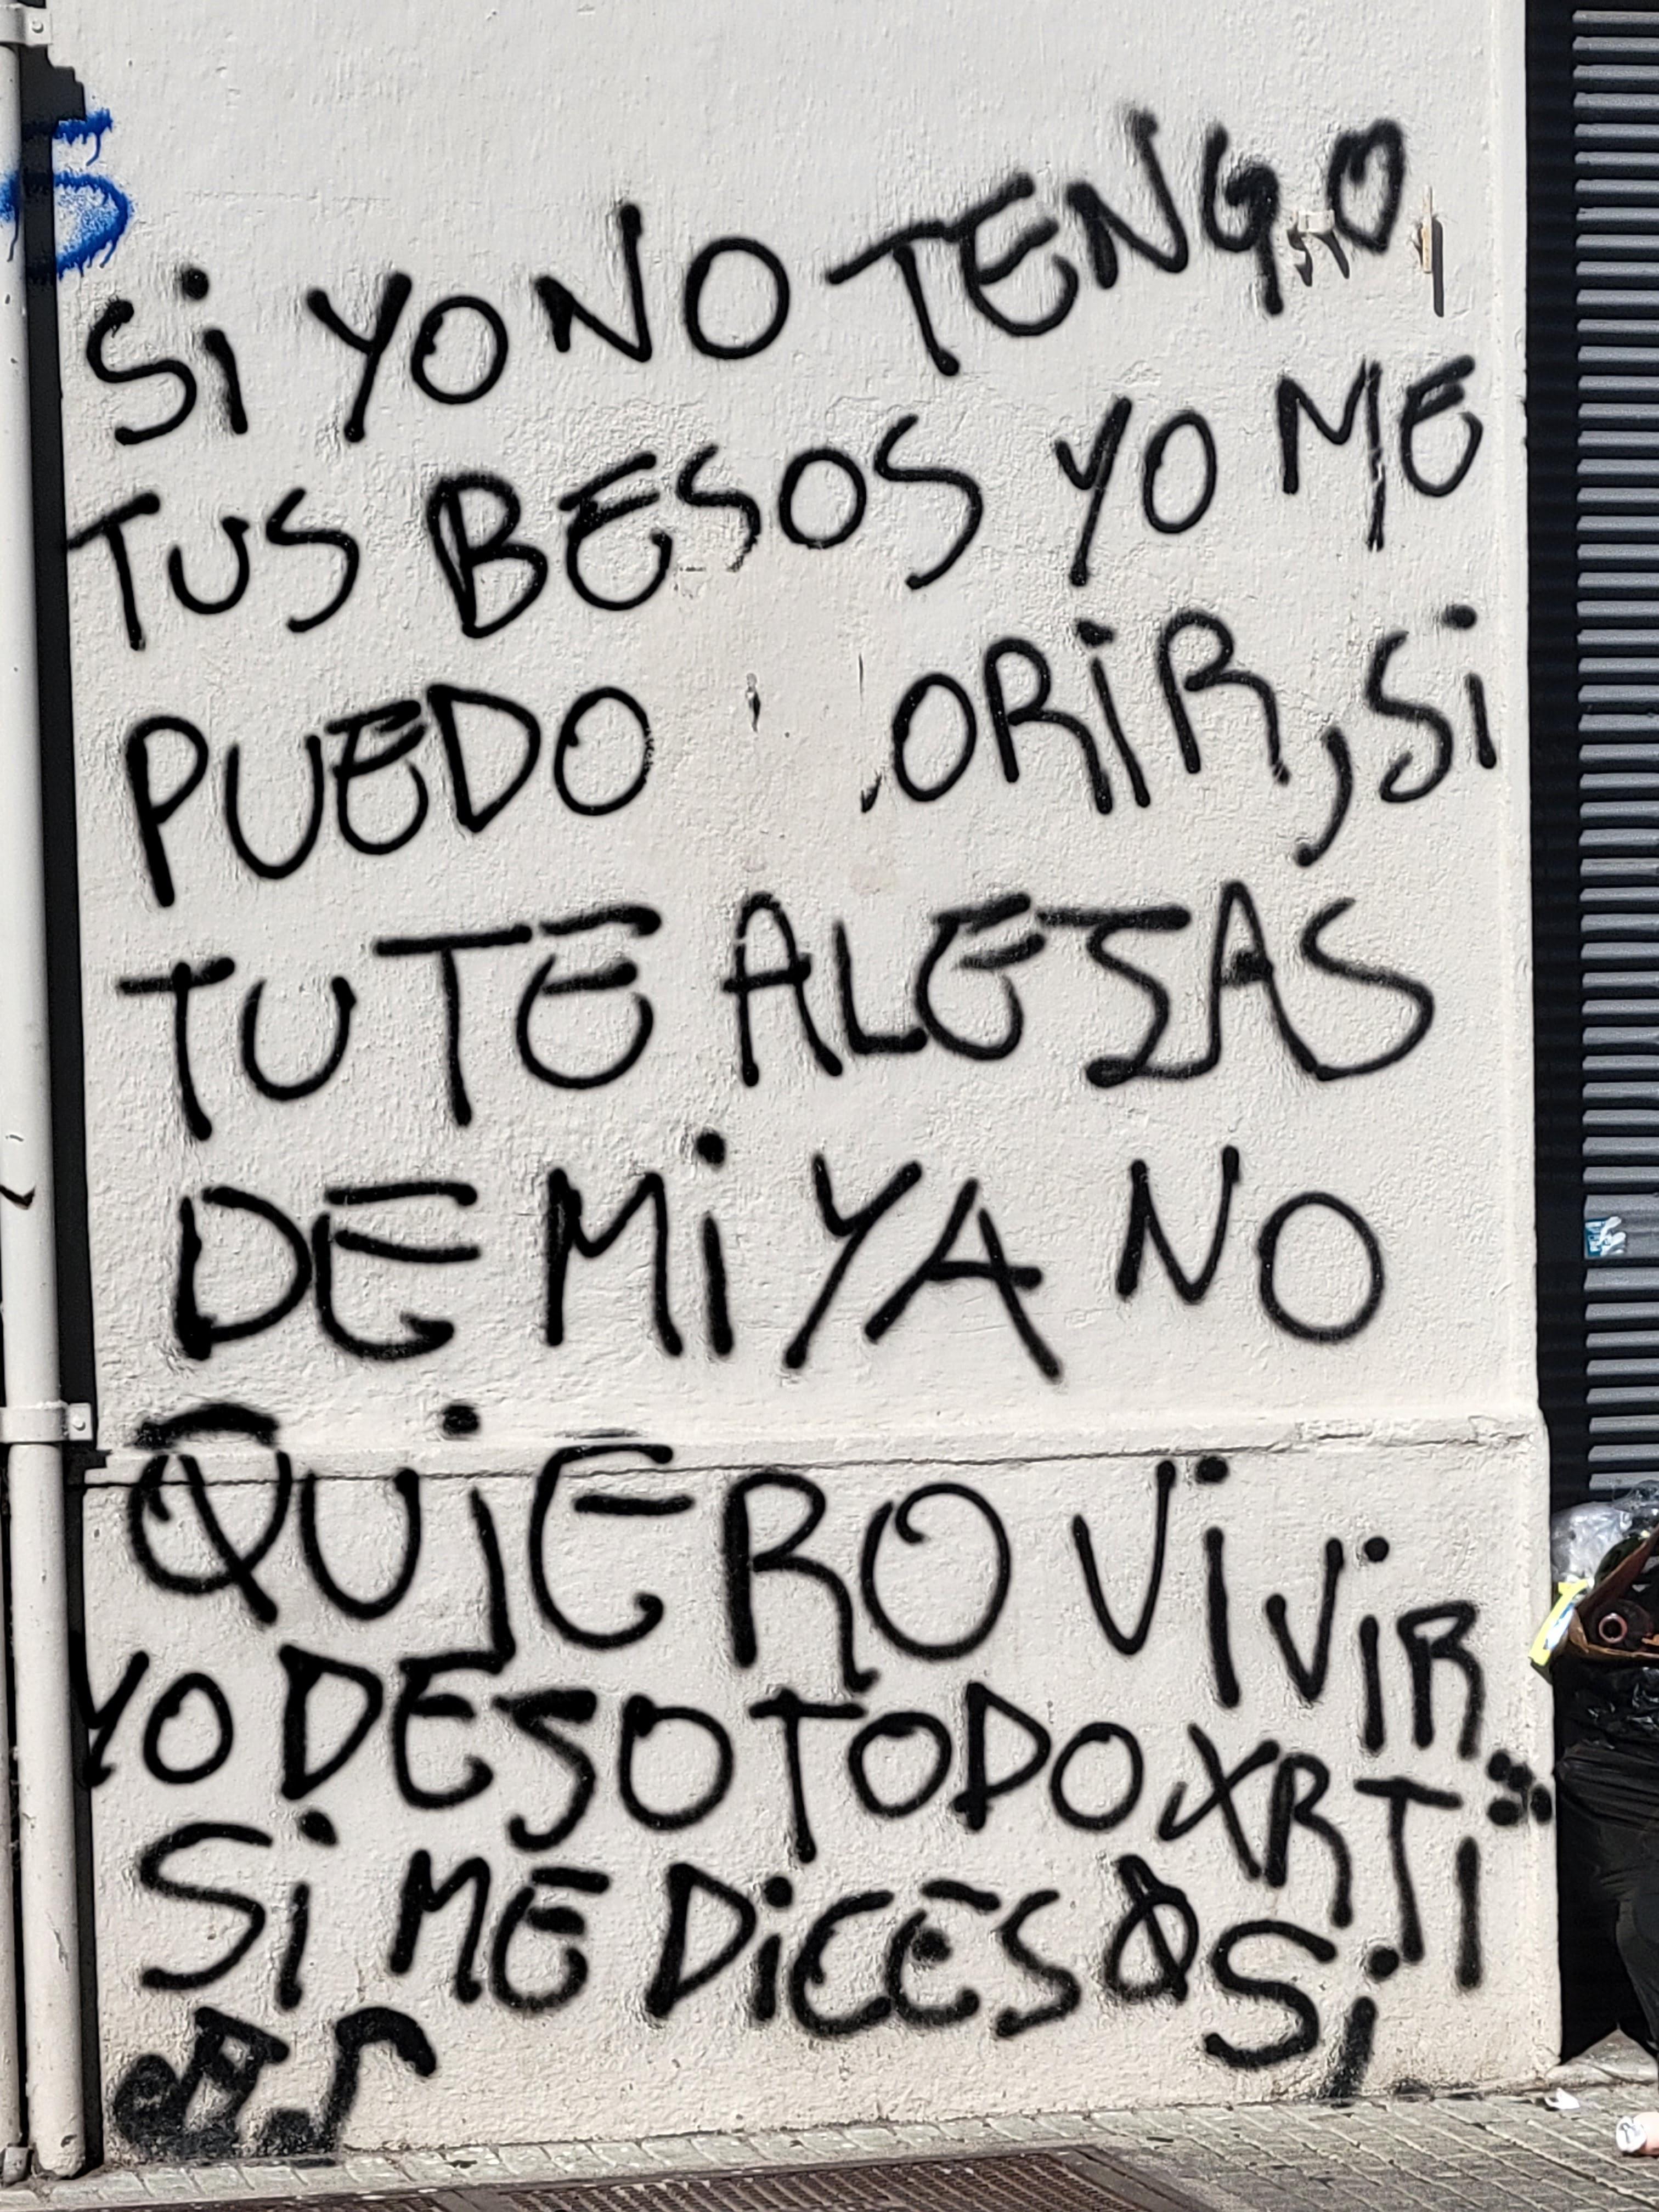 SI YO NO TENGO
TUS BESOS YO ME
PUEDO ORIR, SI
TU TE ALEJAS
DE MI YA NO
QUIERO VIVIR
YO DESO TODO XR TI
SI ME DICES Q SI